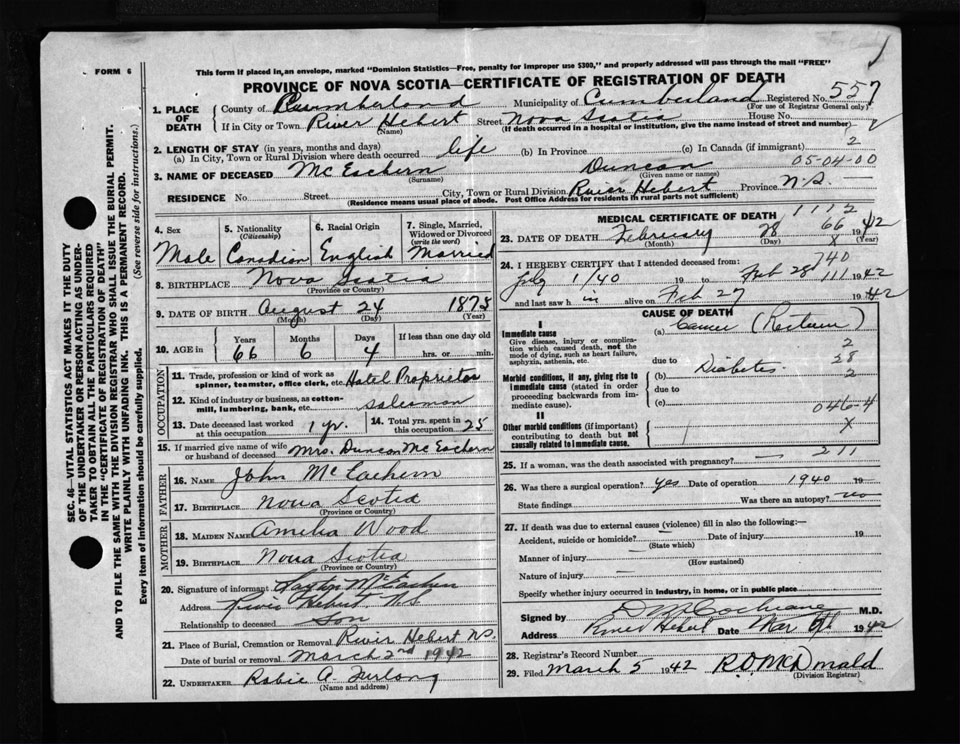 FORM 6
This form if placed in an envelope, marked "Dominion Statistics—Free, penalty for improper use $300," and properly addressed will pass through the mail "FREE"
PROVINCE OF NOVA SCOTIA—CERTIFICATE OF REGISTRATION OF DEATH
1. PLACE OF DEATH
County of Cumberland Municipality of Cumberland Registered No. 557
(For use of Registrar General only)
If in City or Town River Hebert Street Nova Scotia House No.
(Name) (If death occurred in a hospital or institution, give the name instead of street and number)
2. LENGTH OF STAY (in years, months and days)
(a) In City, Town or Rural Division where death occurred life (b) In Province (c) In Canada (if immigrant) 2
05-04-00
3. NAME OF DECEASED McEachern Duncan
(Surname) (Given name or names)
RESIDENCE No. Street City, Town or Rural Division River Hebert Province N.S.
(Residence means usual place of abode. Post Office Address for residents in rural parts not sufficient)
4. Sex Male
5. Nationality (Citizenship) Canadian
6. Racial Origin English
7. Single, Married, Widowed or Divorced (write the word) Married
8. BIRTHPLACE Nova Scotia
(Province or Country)
9. DATE OF BIRTH August 24 1873
(Month) (Day) (Year)
10. AGE in Years Months Days If less than one day old
66 6 4 hrs. or min.
OCCUPATION
11. Trade, profession or kind of work as spinner, teamster, office clerk, etc. Hotel Proprietor
12. Kind of industry or business, as cotton-mill, lumbering, bank, etc. salesman
13. Date deceased last worked at this occupation 1 yr.
14. Total yrs. spent in this occupation 25
15. If married give name of wife or husband of deceased Mrs. Duncan McEachern
FATHER
16. NAME John McEachern
17. BIRTHPLACE Nova Scotia
(Province or Country)
MOTHER
18. MAIDEN NAME Amelia Wood
19. BIRTHPLACE Nova Scotia
(Province or Country)
20. Signature of informant McEachern
Address River Hebert N.S
Relationship to deceased Son
21. Place of Burial, Cremation or Removal River Hebert NS.
Date of burial or removal March 2nd 1942
22. UNDERTAKER Robie A. Furlong
(Name and address)
MEDICAL CERTIFICATE OF DEATH 1112
23. DATE OF DEATH February 28 66 1942
(Month) (Day) X (Year)
740
24. I HEREBY CERTIFY that I attended deceased from:
July 1/40 19 to Feb 28 111 1942
and last saw h im alive on Feb 27 1942
CAUSE OF DEATH
I
Immediate cause
Give disease, injury or complication which caused death, not the mode of dying, such as heart failure, asphyxia, asthenia, etc.
(a) Cancer (Rectum)
2
due to 28
Morbid conditions, if any, giving rise to immediate cause (stated in order proceeding backwards from immediate cause).
(b) Diabetes. 2
due to
(c) 046-4
II
Other morbid conditions (if important) contributing to death but not causally related to immediate cause.
X
25. If a woman, was the death associated with pregnancy? — 211
26. Was there a surgical operation? yes Date of operation 1940 19
State findings Was there an autopsy? no
27. If death was due to external causes (violence) fill in also the following:—
Accident, suicide or homicide? Date of injury 19
(State which)
Manner of injury
(How sustained)
Nature of injury
Specify whether injury occurred in industry, in home, or in public place
Signed by Cochrane M.D.
Address River Hebert Date Mar 1942
28. Registrar's Record Number
29. Filed March 5 1942 R.D. McDonald
(Division Registrar)
SEC. 46—VITAL STATISTICS ACT MAKES IT THE DUTY
OF THE UNDERTAKER OR PERSON ACTING AS UNDER-
TAKER TO OBTAIN ALL THE PARTICULARS REQUIRED
IN THE "CERTIFICATE OF REGISTRATION OF DEATH"
AND TO FILE THE SAME WITH THE DIVISION REGISTRAR WHO SHALL ISSUE THE BURIAL PERMIT.
WRITE PLAINLY WITH UNFADING INK. THIS IS A PERMANENT RECORD.
Every item of information should be carefully supplied. (See reverse side for instructions.)